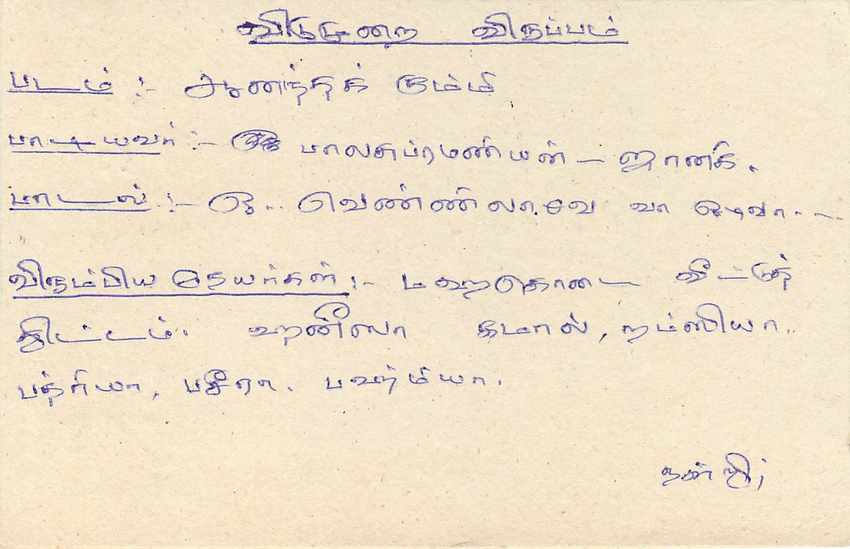 விடுமுறை விருப்பம்
படம் :- ஆனந்தக் கும்மி
பாடியவர் :- பாலசுப்ரமணியன் - ஜானகி.
பாடல் :- ஓ.. வெண்ணிலாவே வா ஓடிவா....
விரும்பிய நேயர்கள் :- மஹகொடை வீட்டுத்
திட்டம். ஹனீஸா கமால், றம்ஸியா..
பத்ரியா, பசீரா. பஹ்மியா.
நன்றி;